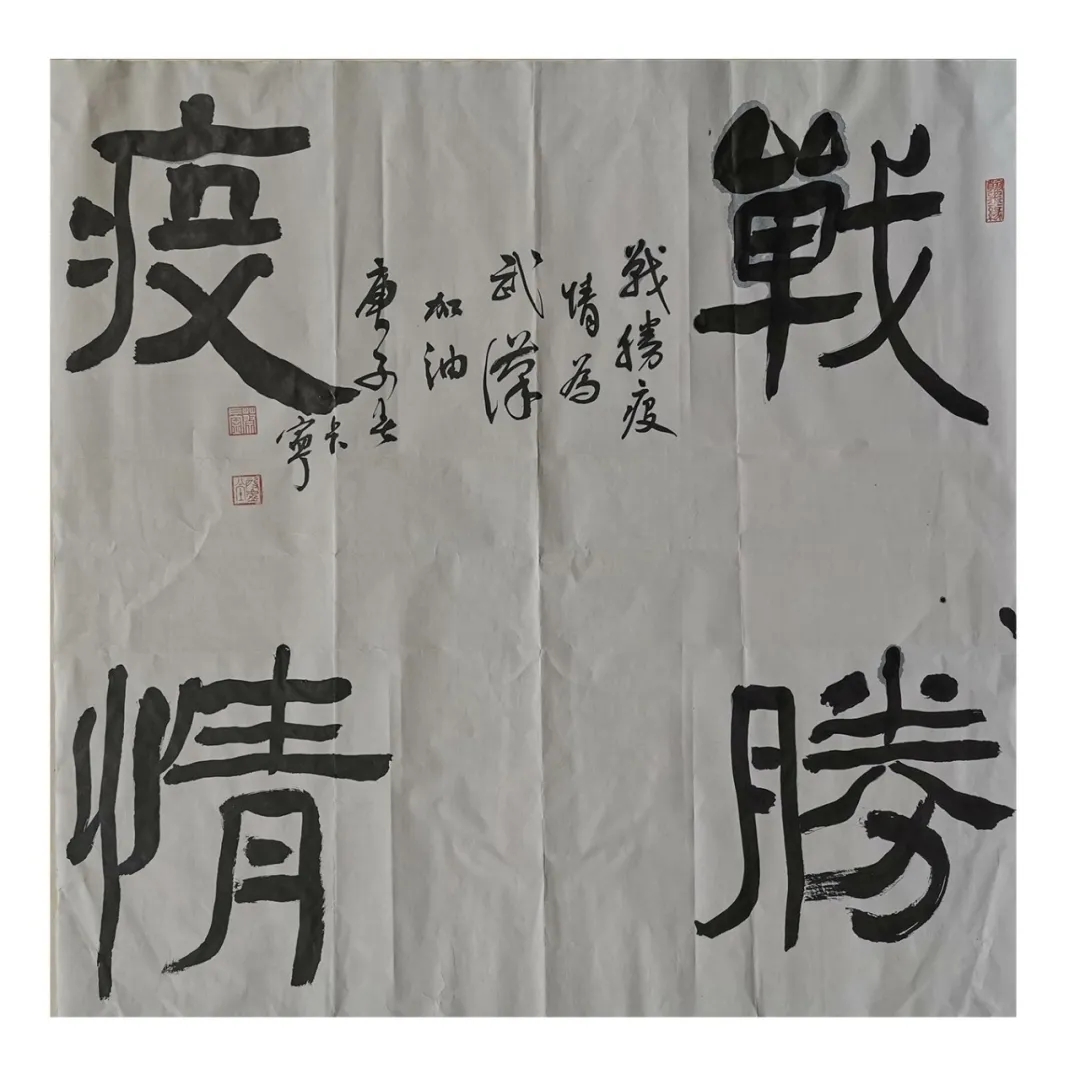 戰勝
疫情
戰勝疫
情為
武漢
加油
庚子春
寧